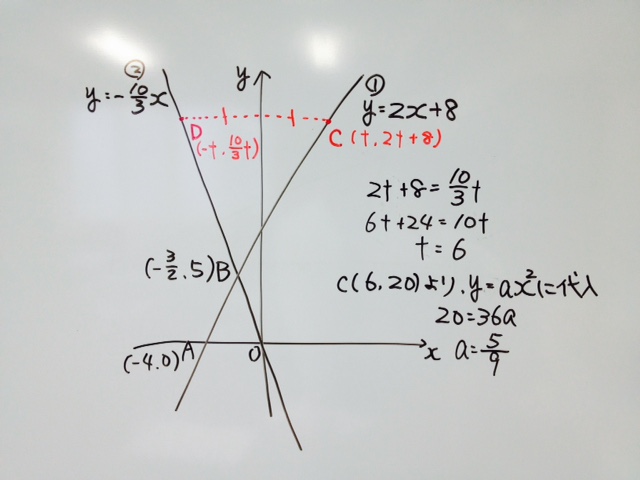 ②
y=-10/3x
y
①
y=2x+8
D
(-t, 10/3t)
C(t, 2t+8)
2t+8=10/3t
6t+24=10t
t=6
(-3/2, 5)B
C(6,20)より、y=ax²に代入
20=36a
a=5/9
(-4.0)A
O
x